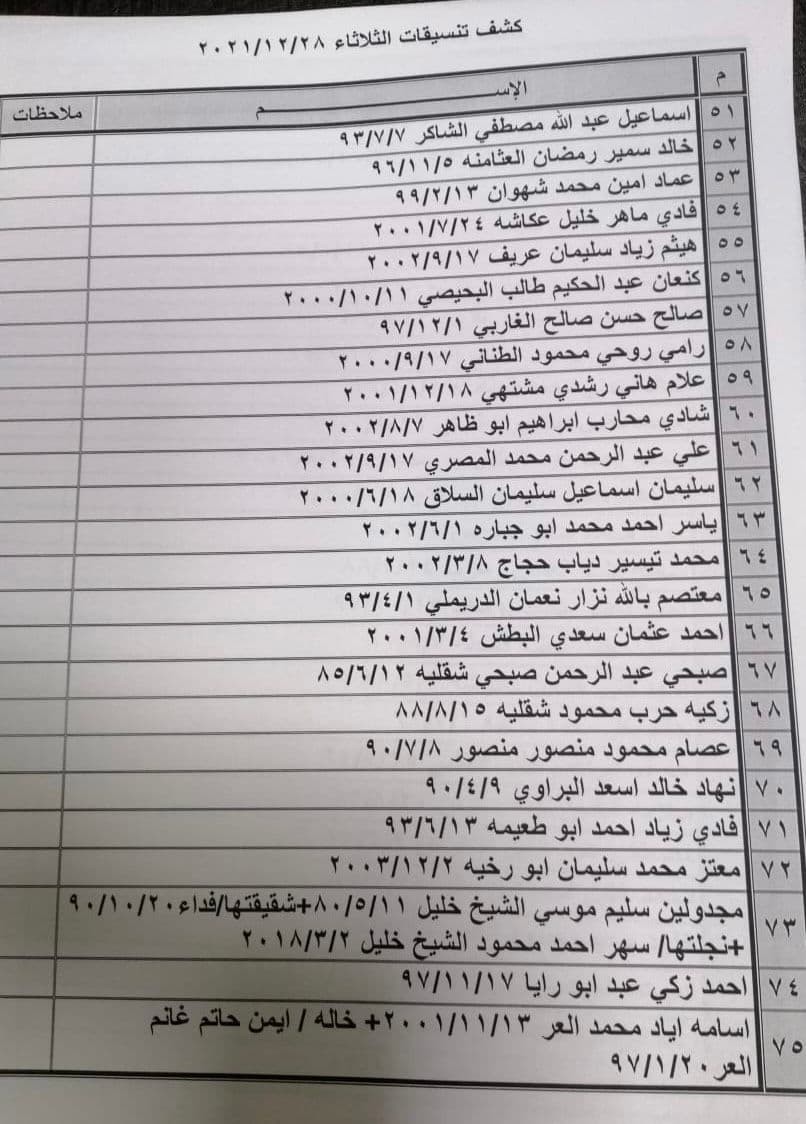 كشف تنسيقات الثلاثاء ٢٠٢١/١٢/٢٨
م الإســــم ملاحظات
٥١ اسماعيل عبد الله مصطفي الشاكر ٩٣/٧/٧
٥٢ خالد سمير رمضان العثامنه ٩٦/١١/٥
٥٣ عماد امين محمد شهوان ٩٩/٢/١٣
٥٤ فادي ماهر خليل عكاشه ٢٠٠١/٧/٢٤
٥٥ هيثم زياد سليمان عريف ٢٠٠٢/٩/١٧
٥٦ كنعان عبد الحكيم طالب البحيصي ٢٠٠٠/١٠/١١
٥٧ صالح حسن صالح الغاربي ٩٧/١٢/١
٥٨ رامي روحي محمود الطناني ٢٠٠٠/٩/١٧
٥٩ علام هاني رشدي مشتهي ٢٠٠١/١٢/١٨
٦٠ شادي محارب ابراهيم ابو ظاهر ٢٠٠٢/٨/٧
٦١ علي عبد الرحمن محمد المصري ٢٠٠٢/٩/١٧
٦٢ سليمان اسماعيل سليمان السلاق ٢٠٠٠/٦/١٨
٦٣ ياسر احمد محمد ابو جباره ٢٠٠٢/٦/١
٦٤ محمد تيسير دياب حجاج ٢٠٠٢/٣/٨
٦٥ معتصم بالله نزار نعمان الدريملي ٩٣/٤/١
٦٦ احمد عثمان سعدي البطش ٢٠٠١/٣/٤
٦٧ صبحي عبد الرحمن صبحي شقليه ٨٥/٦/١٢
٦٨ زكيه حرب محمود شقليه ٨٨/٨/١٥
٦٩ عصام محمود منصور منصور ٩٠/٧/٨
٧٠ نهاد خالد اسعد البراوي ٩٠/٤/٩
٧١ فادي زياد احمد ابو طعيمه ٩٣/٦/١٣
٧٢ معتز محمد سليمان ابو رخيه ٢٠٠٣/١٢/٢
٧٣ مجدولين سليم موسي الشيخ خليل ٨٠/٥/١١+شقيقتها/فداء٩٠/١٠/٢٠
+نجلتها/ سهر احمد محمود الشيخ خليل ٢٠١٨/٣/٢
٧٤ احمد زكي عبد ابو رايا ٩٧/١١/١٧
٧٥ اسامه اياد محمد العر ٢٠٠١/١١/١٣+ خاله / ايمن حاتم غانم
العر ٩٧/١/٢٠